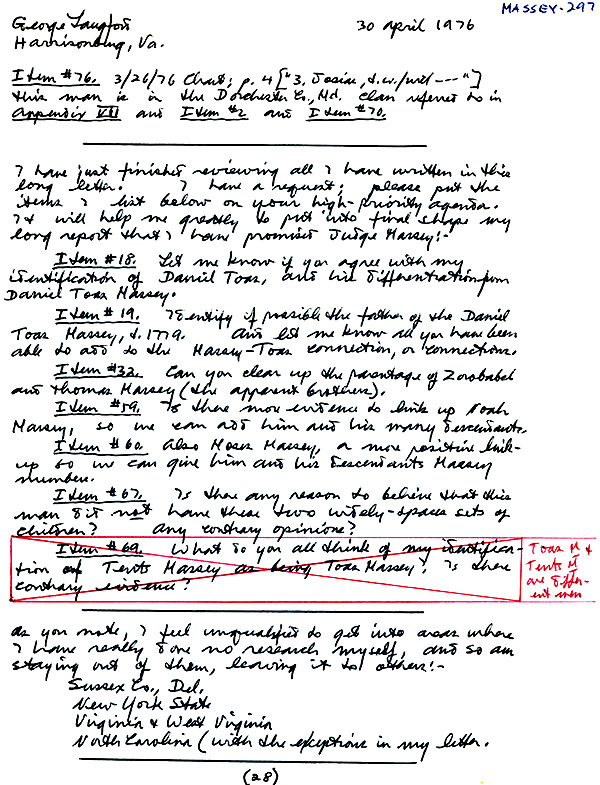 MASSEY-297
George Langford 30 April 1976
Harrisonburg, Va.
Item #76. 3/26/76 Chart; p. 4 ["3. Josiae, d.w./will --- "]
this man is in the Dorchester Co., Md. clan referred to in
Appendix VIII and Item #2 and Item #70.
I have just finished reviewing all I have written in this
long letter. I have a request: please put the
items I list below on your high-priority agenda.
It will help me greatly to put into final shape my
long report that I have promised Judge Massey:-
Item #18. Let me know if you agree with my
identification of Daniel Toas, and his differentiation from
Daniel Toas Massey.
Item #19. Identify if possible the father of the Daniel
Toas Massey, d. 1779. And let me know all you have been
able to add to the Massey-Toas connection, or connections.
Item #32. Can you clear up the parentage of Zorobabel
and Thomas Massey (the apparent brothers).
Item #59. Is there more evidence to link up Noah
Massey, so we can add him and his many descendants.
Item #60. Also Moses Massey, a more positive link-
up so we can give him and his descendants Massey
number.
Item #67. Is there any reason to believe that this
man did not have these two widely-spaced sets of
children? Any contrary opinions?
Item #69. What do you all think of my identifica-
tion of Tents Massey as being Toas Massey; is there
contrary evidence?
Toas M &
Tents M
are differ-
ent men
As you note, I feel unqualified to get into areas where
I have really done no research myself, and so am
staying out of them, leaving it to others:-
Sussex Co., Del.
New York State
Virginia & West Virginia
North Carolina (with the exceptions in my letter.
(28)